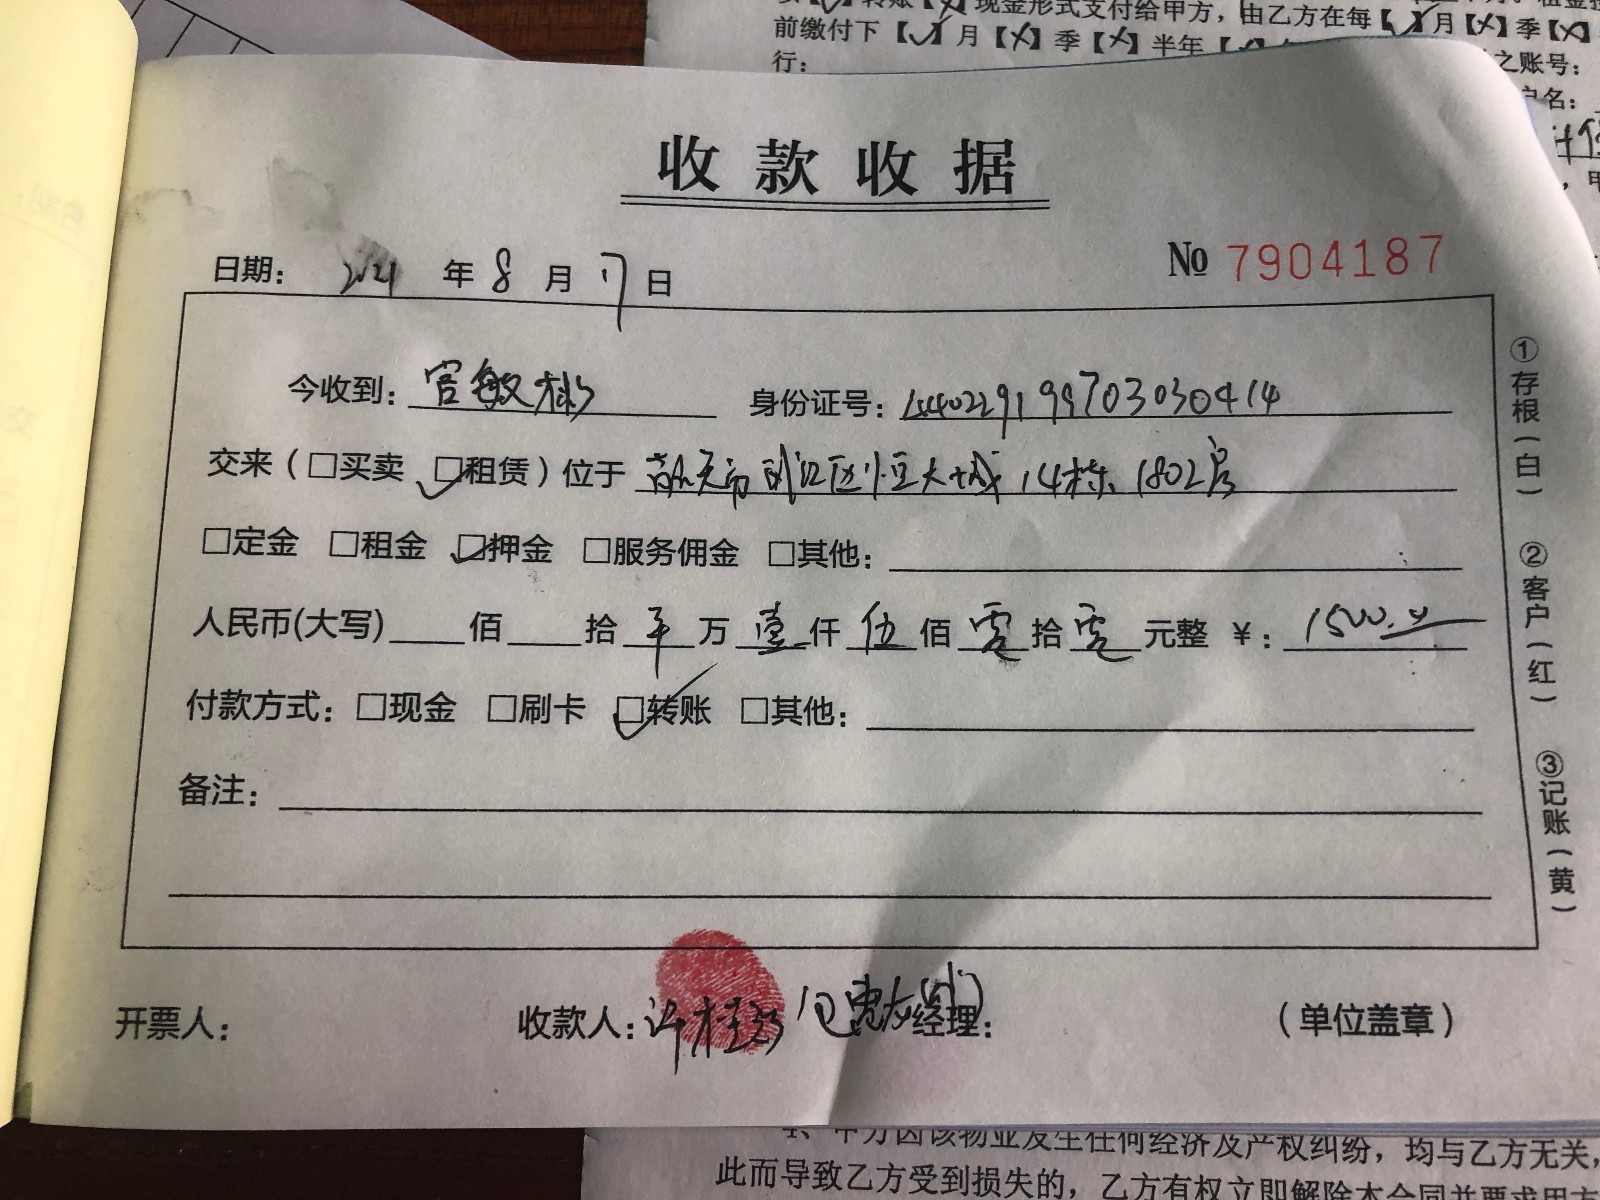 转账【 】现金形式支付给甲方，由乙方在每【✓】月【X】季【X】
前缴付下【✓】月【X】季【X】半年
行：
之账号：
户名：
收款收据
日期： 2021 年 8 月 17 日
№ 7904187
今收到：官敏彬 身份证号：440229199703030414
交来（□买卖 ☑租赁）位于 韶关市武江区恒大城14栋1802房
□定金 □租金 ☑押金 □服务佣金 □其他：
人民币(大写) 佰 拾 万 壹仟 伍佰 零拾 零元整 ￥：1500.00
付款方式：□现金 □刷卡 ☑转账 □其他：
备注：
开票人： 收款人：许桂 经理： （单位盖章）
①存根（白） ②客户（红） ③记账（黄）
甲方因该物业发生任何经济及产权纠纷，均与乙方无关，
此而导致乙方受到损失的，乙方有权立即解除本合同并要求甲方